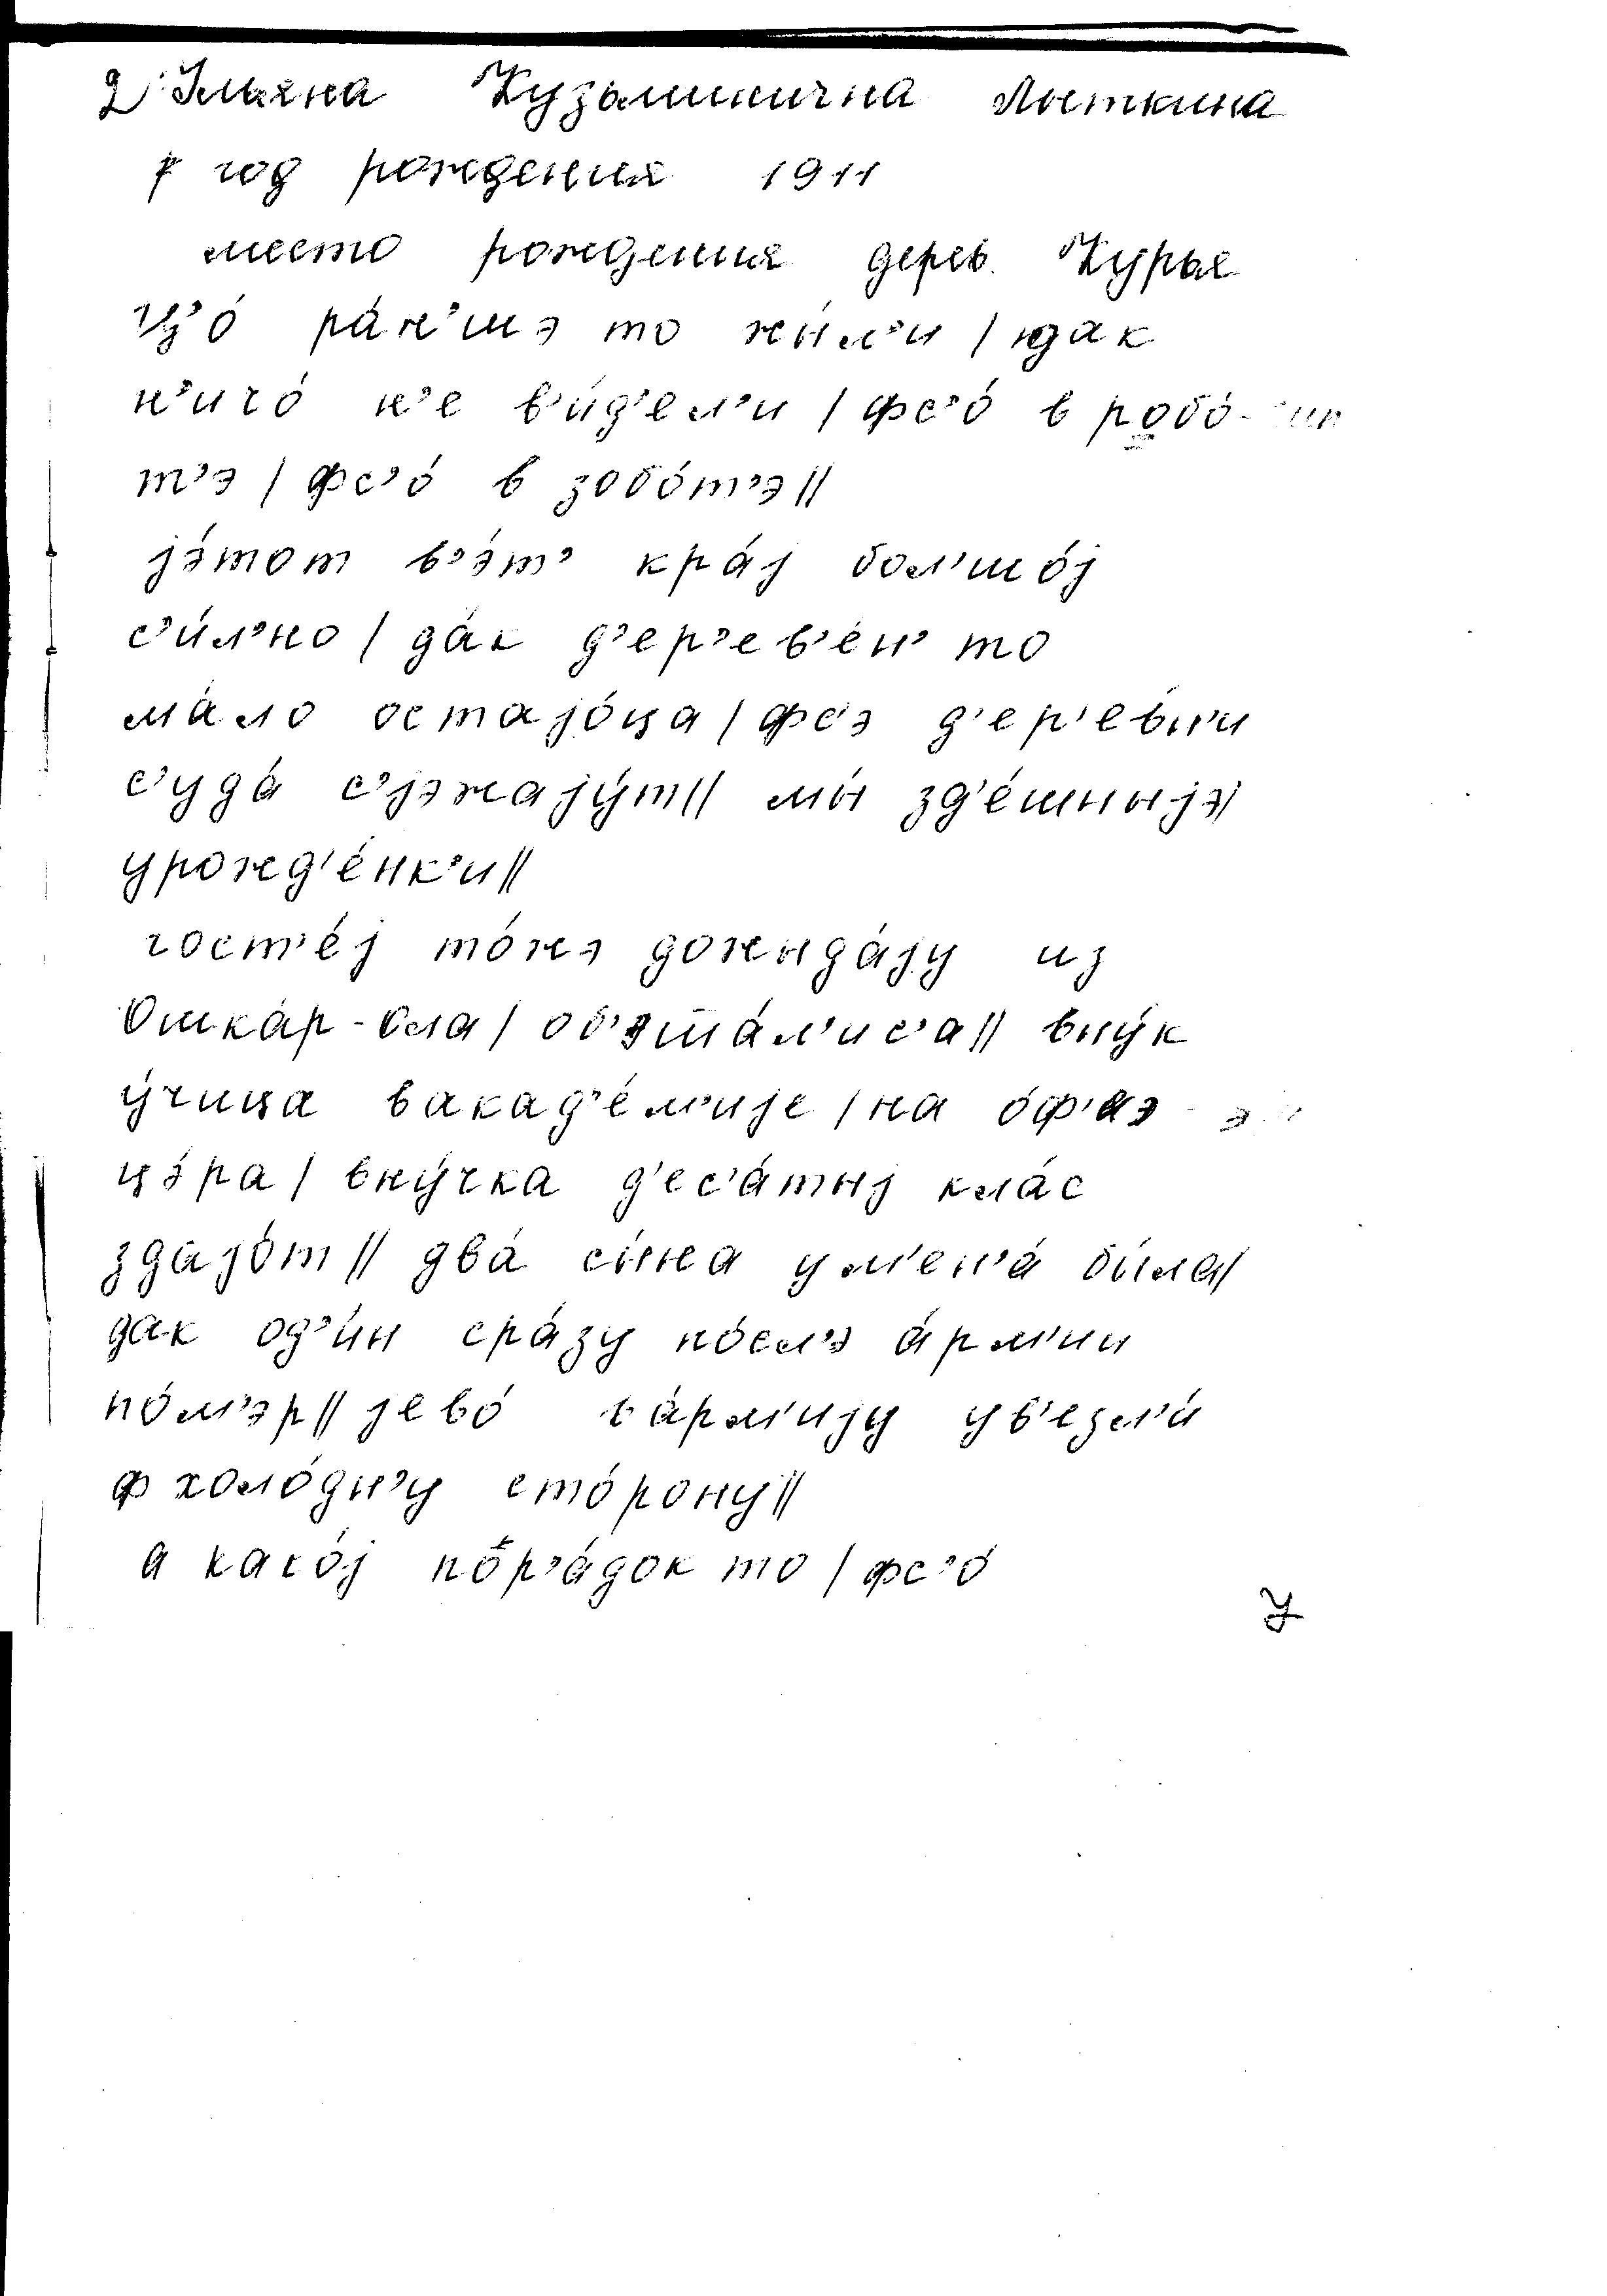 2 Ульяна Кузьминична Лыткина
год рождения 1911
место рождения дерев. Курья
Ц'о́ ра́н'шэ то жы́л'и / дак
н'ичо́ н'е в'и́д'ел'и / фс'о́ в робо́-
т'э / фс'о́ в зобо́т'э //
jэ́тот в'э́т' кра́j бол'шо́j
с'и́л'но / да́к д'ер'ев'е́н' то
ма́ло остаjо́ца / фс'э д'ер'е́вн'и
с'уда́ с'jэжаjу́т // мы́ зд'е́шныjэ /
урожд'е́нк'и //
гост'е́j то́жэ дожыда́jу из
Ошка́р-Ола / об'эша́л'ис'а // вну́к
у́чица в акад'е́м'иjе / на оф'и-
цэ́ра / вну́чка д'ес'а́тыj кла́с
здаjо́т // два́ сы́на у м'ен'а́ бы́ла /
дак од'и́н сра́зу по́сл'э а́рм'ии
по́м'эр // jево́ в а́рм'иjу ув'езл'и́
ф холо́дн'у сто́рону //
а како́j пор'а́док то / фс'о́